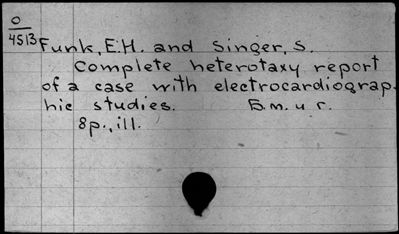 O
4513
Funk, E.H. and Singer, S.
Complete heterotaxy report
of a case with electrocardiograp.
hic studies. Б.м. и г.
8p., ill.